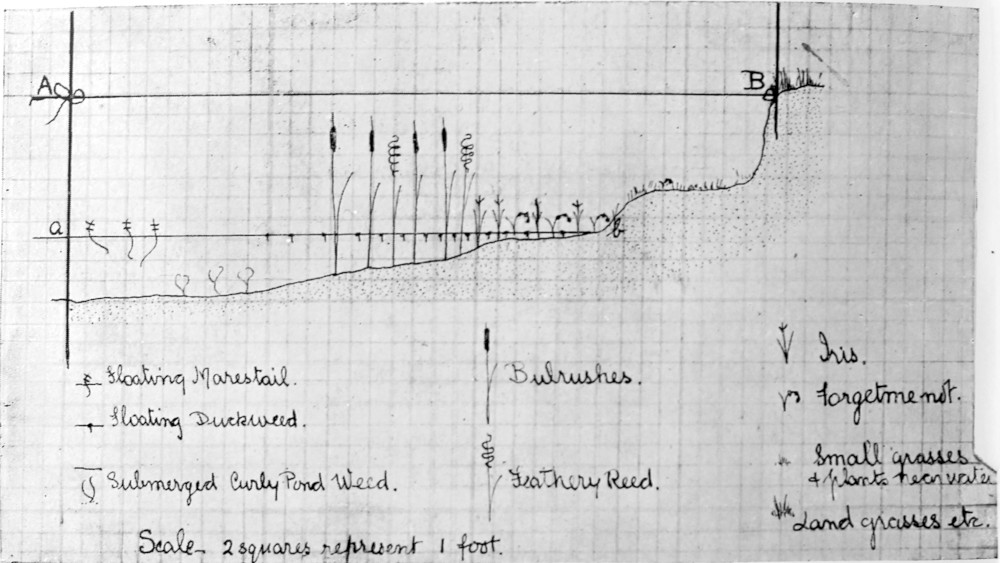 A
B
a
b
Floating Marestail.
Floating Duckweed.
Submerged Curly Pond Weed.
Bulrushes.
Feathery Reed.
Iris.
Forgetmenot.
Small grasses
& plants near water
Land grasses etc.
Scale - 2 squares represent 1 foot.